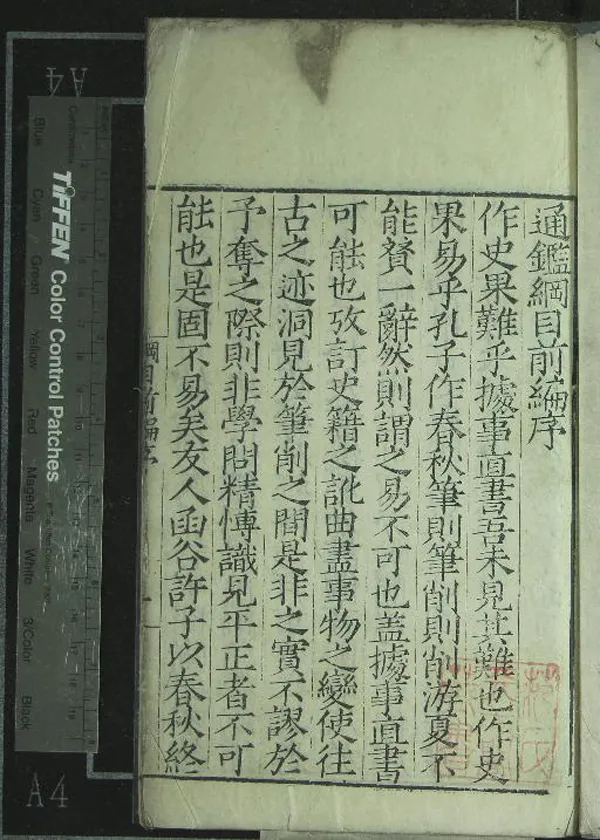 通鑑綱目前編序
作史果難乎據事直書吾未見其難也作史
果易乎孔子作春秋筆則筆削則削游夏不
能贊一辭然則謂之易不可也蓋據事直書
可能也攷訂史籍之訛曲盡事物之變使往
古之迹洞見於筆削之間是非之實不謬於
予奪之際則非學問精博識見平正者不可
能也是固不易矣友人函谷許子以春秋終
綱目前編序
TIFFEN Color Control Patches
Blue Cyan Green Yellow Red Magenta White 3/Color Black
A4
A4